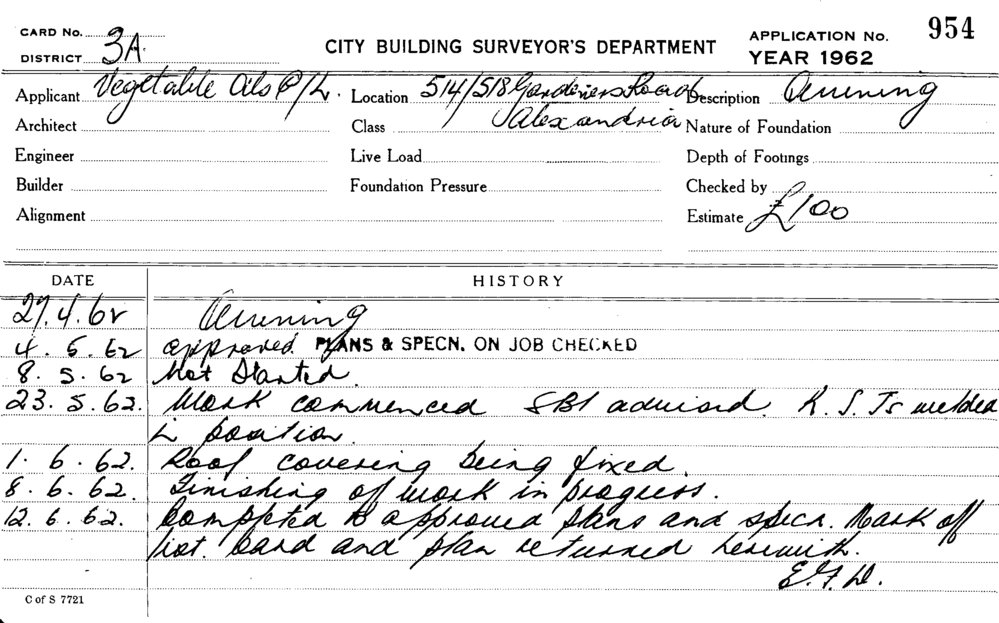 CARD No.
DISTRICT 3A.
CITY BUILDING SURVEYOR'S DEPARTMENT
APPLICATION No. 954
YEAR 1962
Applicant Vegetable Oils P/L. Location 514/518 Gardeners Road Description Awning
Architect Class Alexandria Nature of Foundation
Engineer Live Load Depth of Footings
Builder Foundation Pressure Checked by
Alignment Estimate £100
DATE HISTORY
27.4.62 Awning
4.5.62 approved PLANS & SPECN. ON JOB CHECKED
8.5.62 Not Started.
23.5.62. Work commenced SBI advised. R.S.Js welded
in position.
1.6.62. Roof covering being fixed.
8.6.62. Finishing of work in progress.
12.6.62. Completed to approved plans and specn. Mark off
list. Card and plan returned herewith.
E.F.D.
C of S 7721